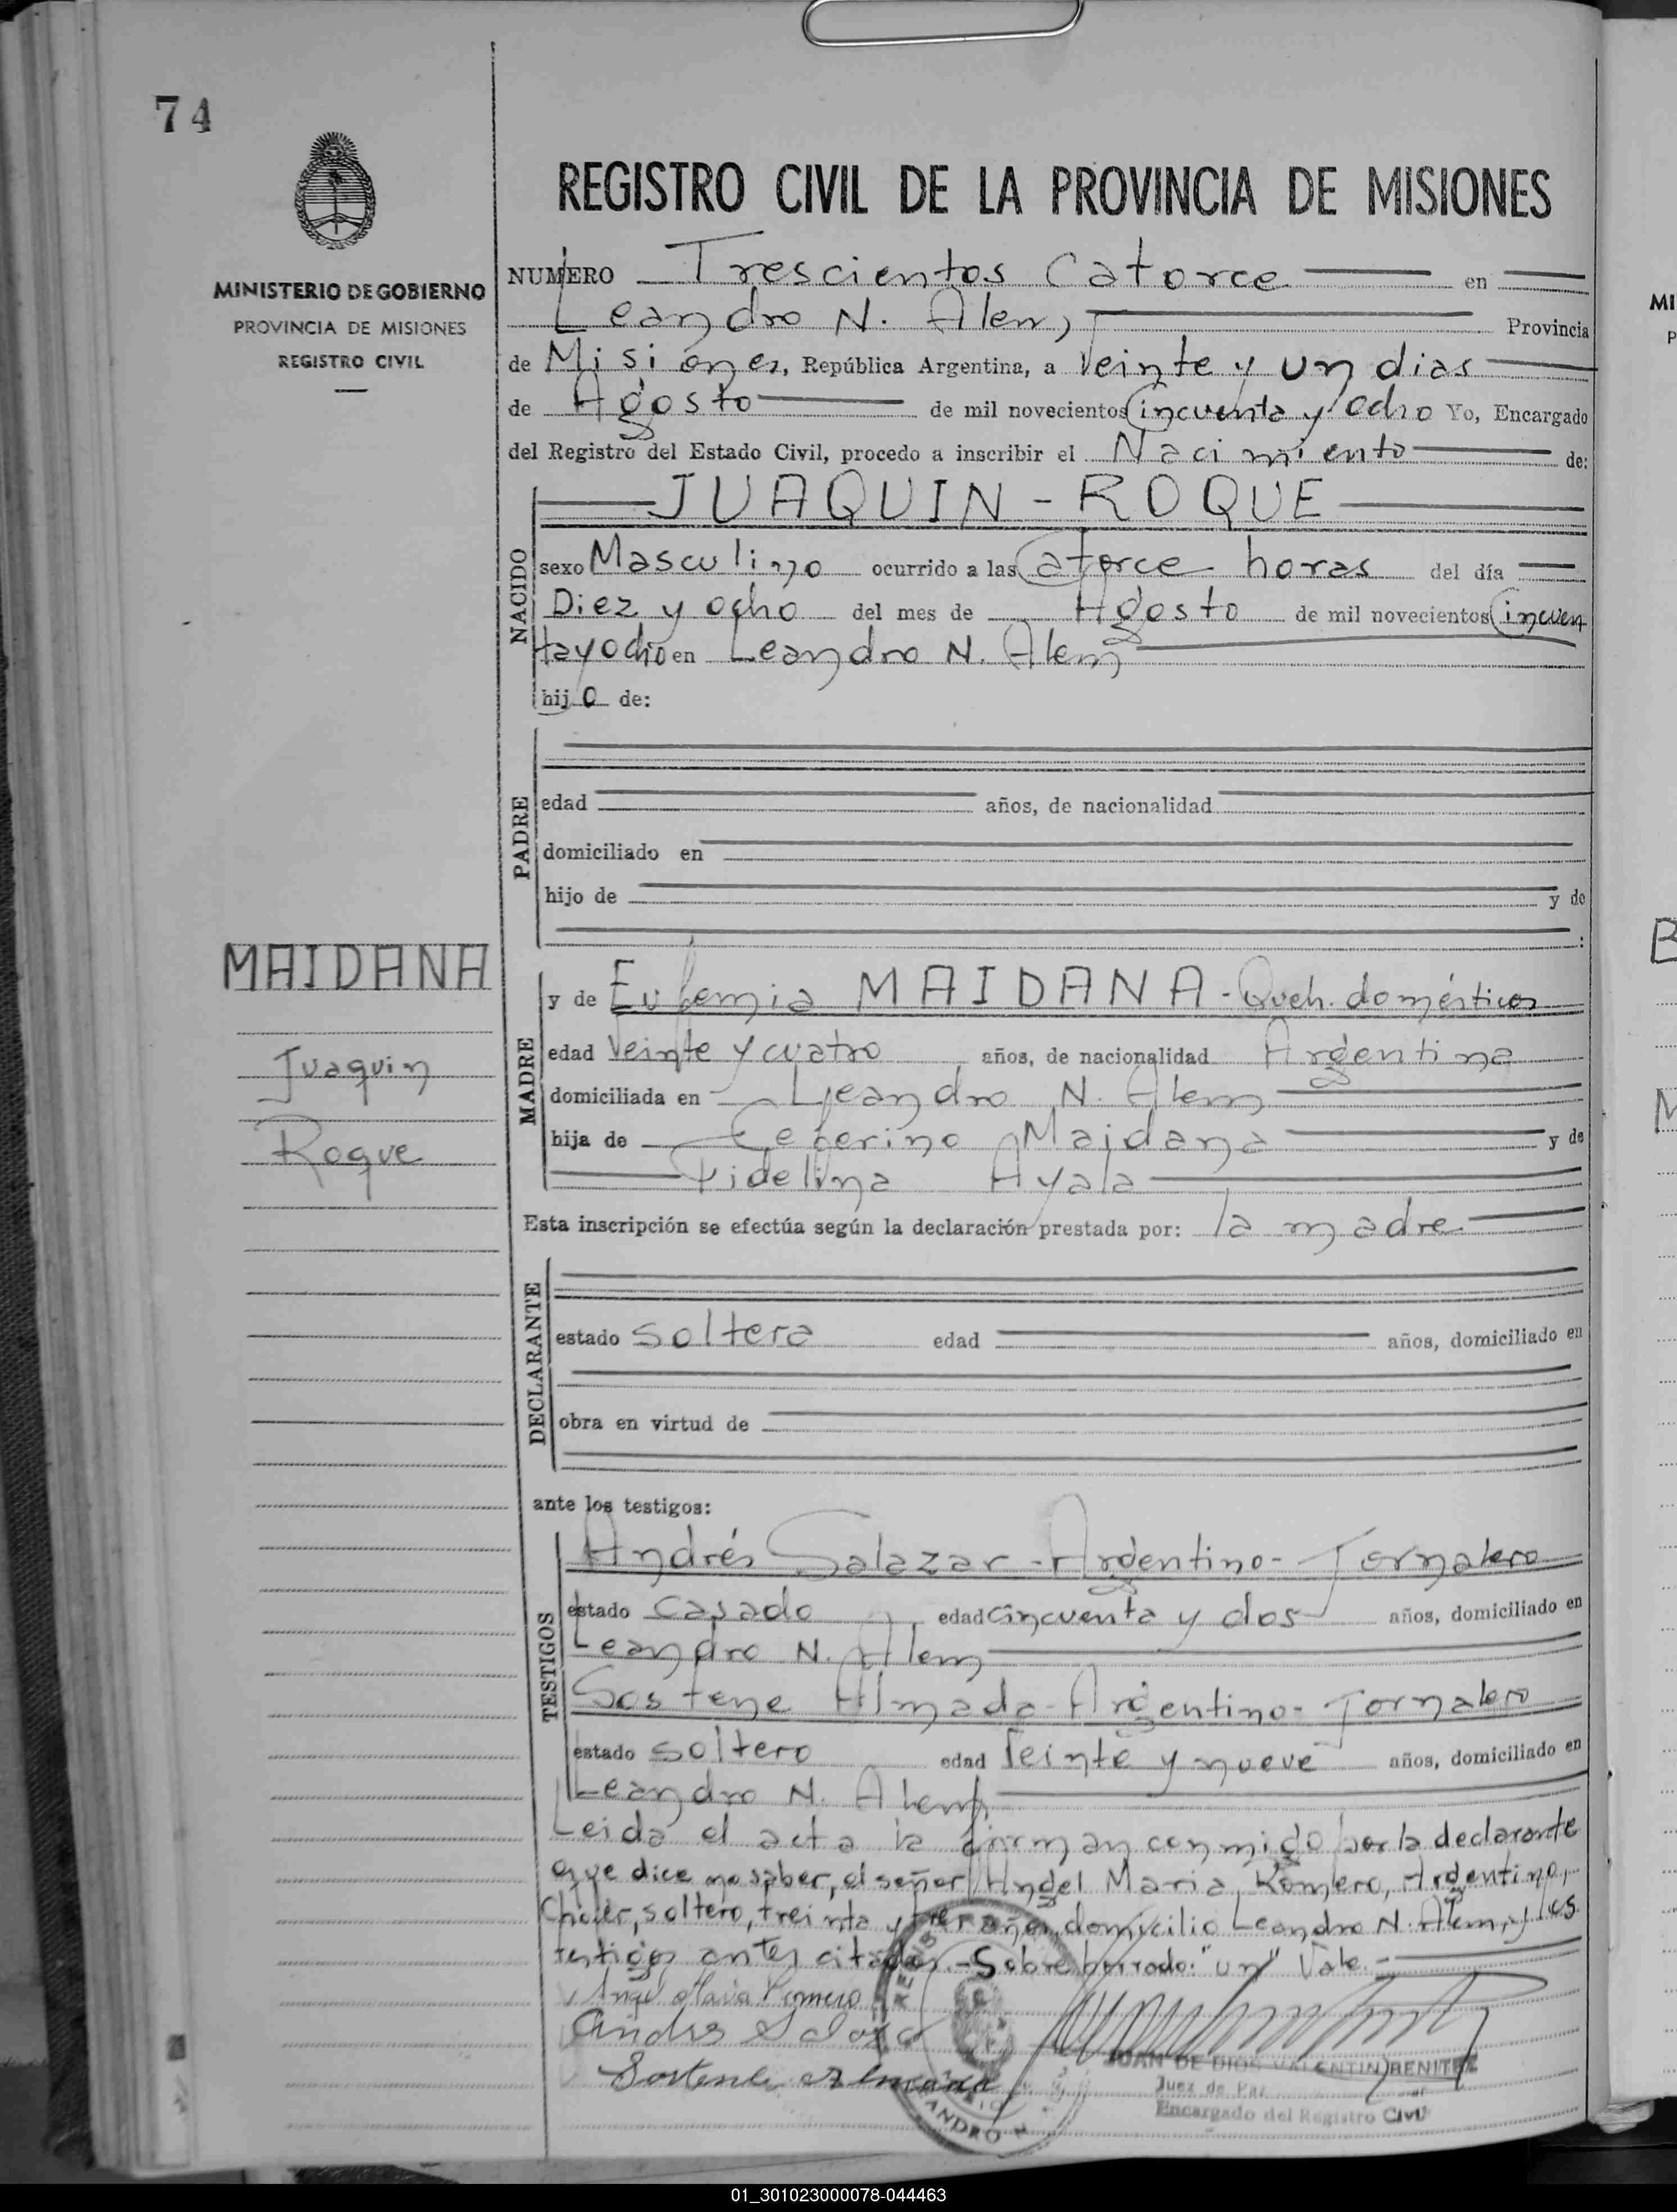 74
REGISTRO CIVIL DE LA PROVINCIA DE MISIONES
MINISTERIO DE GOBIERNO
PROVINCIA DE MISIONES
REGISTRO CIVIL
NUMERO Trescientos Catorce en
Leandro N. Alem, Provincia
de Misiones, República Argentina, a Veinte y un dias
de Agosto de mil novecientos Cincuenta y Ocho Yo, Encargado
del Registro del Estado Civil, procedo a inscribir el Nacimiento de:
NACIDO
JUAQUIN - ROQUE
sexo Masculino ocurrido a las Catorce horas del día
Diez y ocho del mes de Agosto de mil novecientos Cincuen
ta y Ocho en Leandro N. Alem
hijo de:
PADRE
edad años, de nacionalidad
domiciliado en
hijo de y de
:
MAIDANA
Juaquin
Roque
MADRE
y de Eufemia MAIDANA - Queh. domésticos
edad Veinte y cuatro años, de nacionalidad Argentina
domiciliada en Leandro N. Alem
hija de Ceferino Maidana y de
Fidelina Ayala
Esta inscripción se efectúa según la declaración prestada por: la madre
DECLARANTE
estado soltera edad años, domiciliado en
obra en virtud de
ante los testigos:
TESTIGOS
Andrés Salazar - Argentino - Jornalero
estado casado edad cincuenta y dos años, domiciliado en
Leandro N. Alem
Sostene Almada - Argentino - Jornalero
estado soltero edad Veinte y nueve años, domiciliado en
Leandro N. Alem
Leida el acta la firman conmigo por la declarante
que dice no saber, el señor Angel Maria Romero, Argentino,
Chofer, soltero, treinta y tres años, domicilio Leandro N. Alem, y los
testigos antes citados. - Sobre borrado: "un" Vale. -
Angel Maria Romero
Andres Salazar
Sostene Almada
JUAN DE DIOS VALENTIN BENITEZ
Juez de Paz
Encargado del Registro Civil
01_301023000078-044463